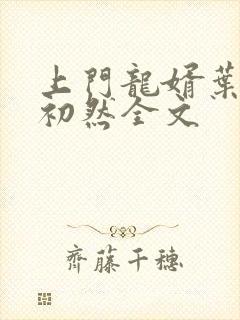 上門龍婿葉
初然全文
齊藤千穗